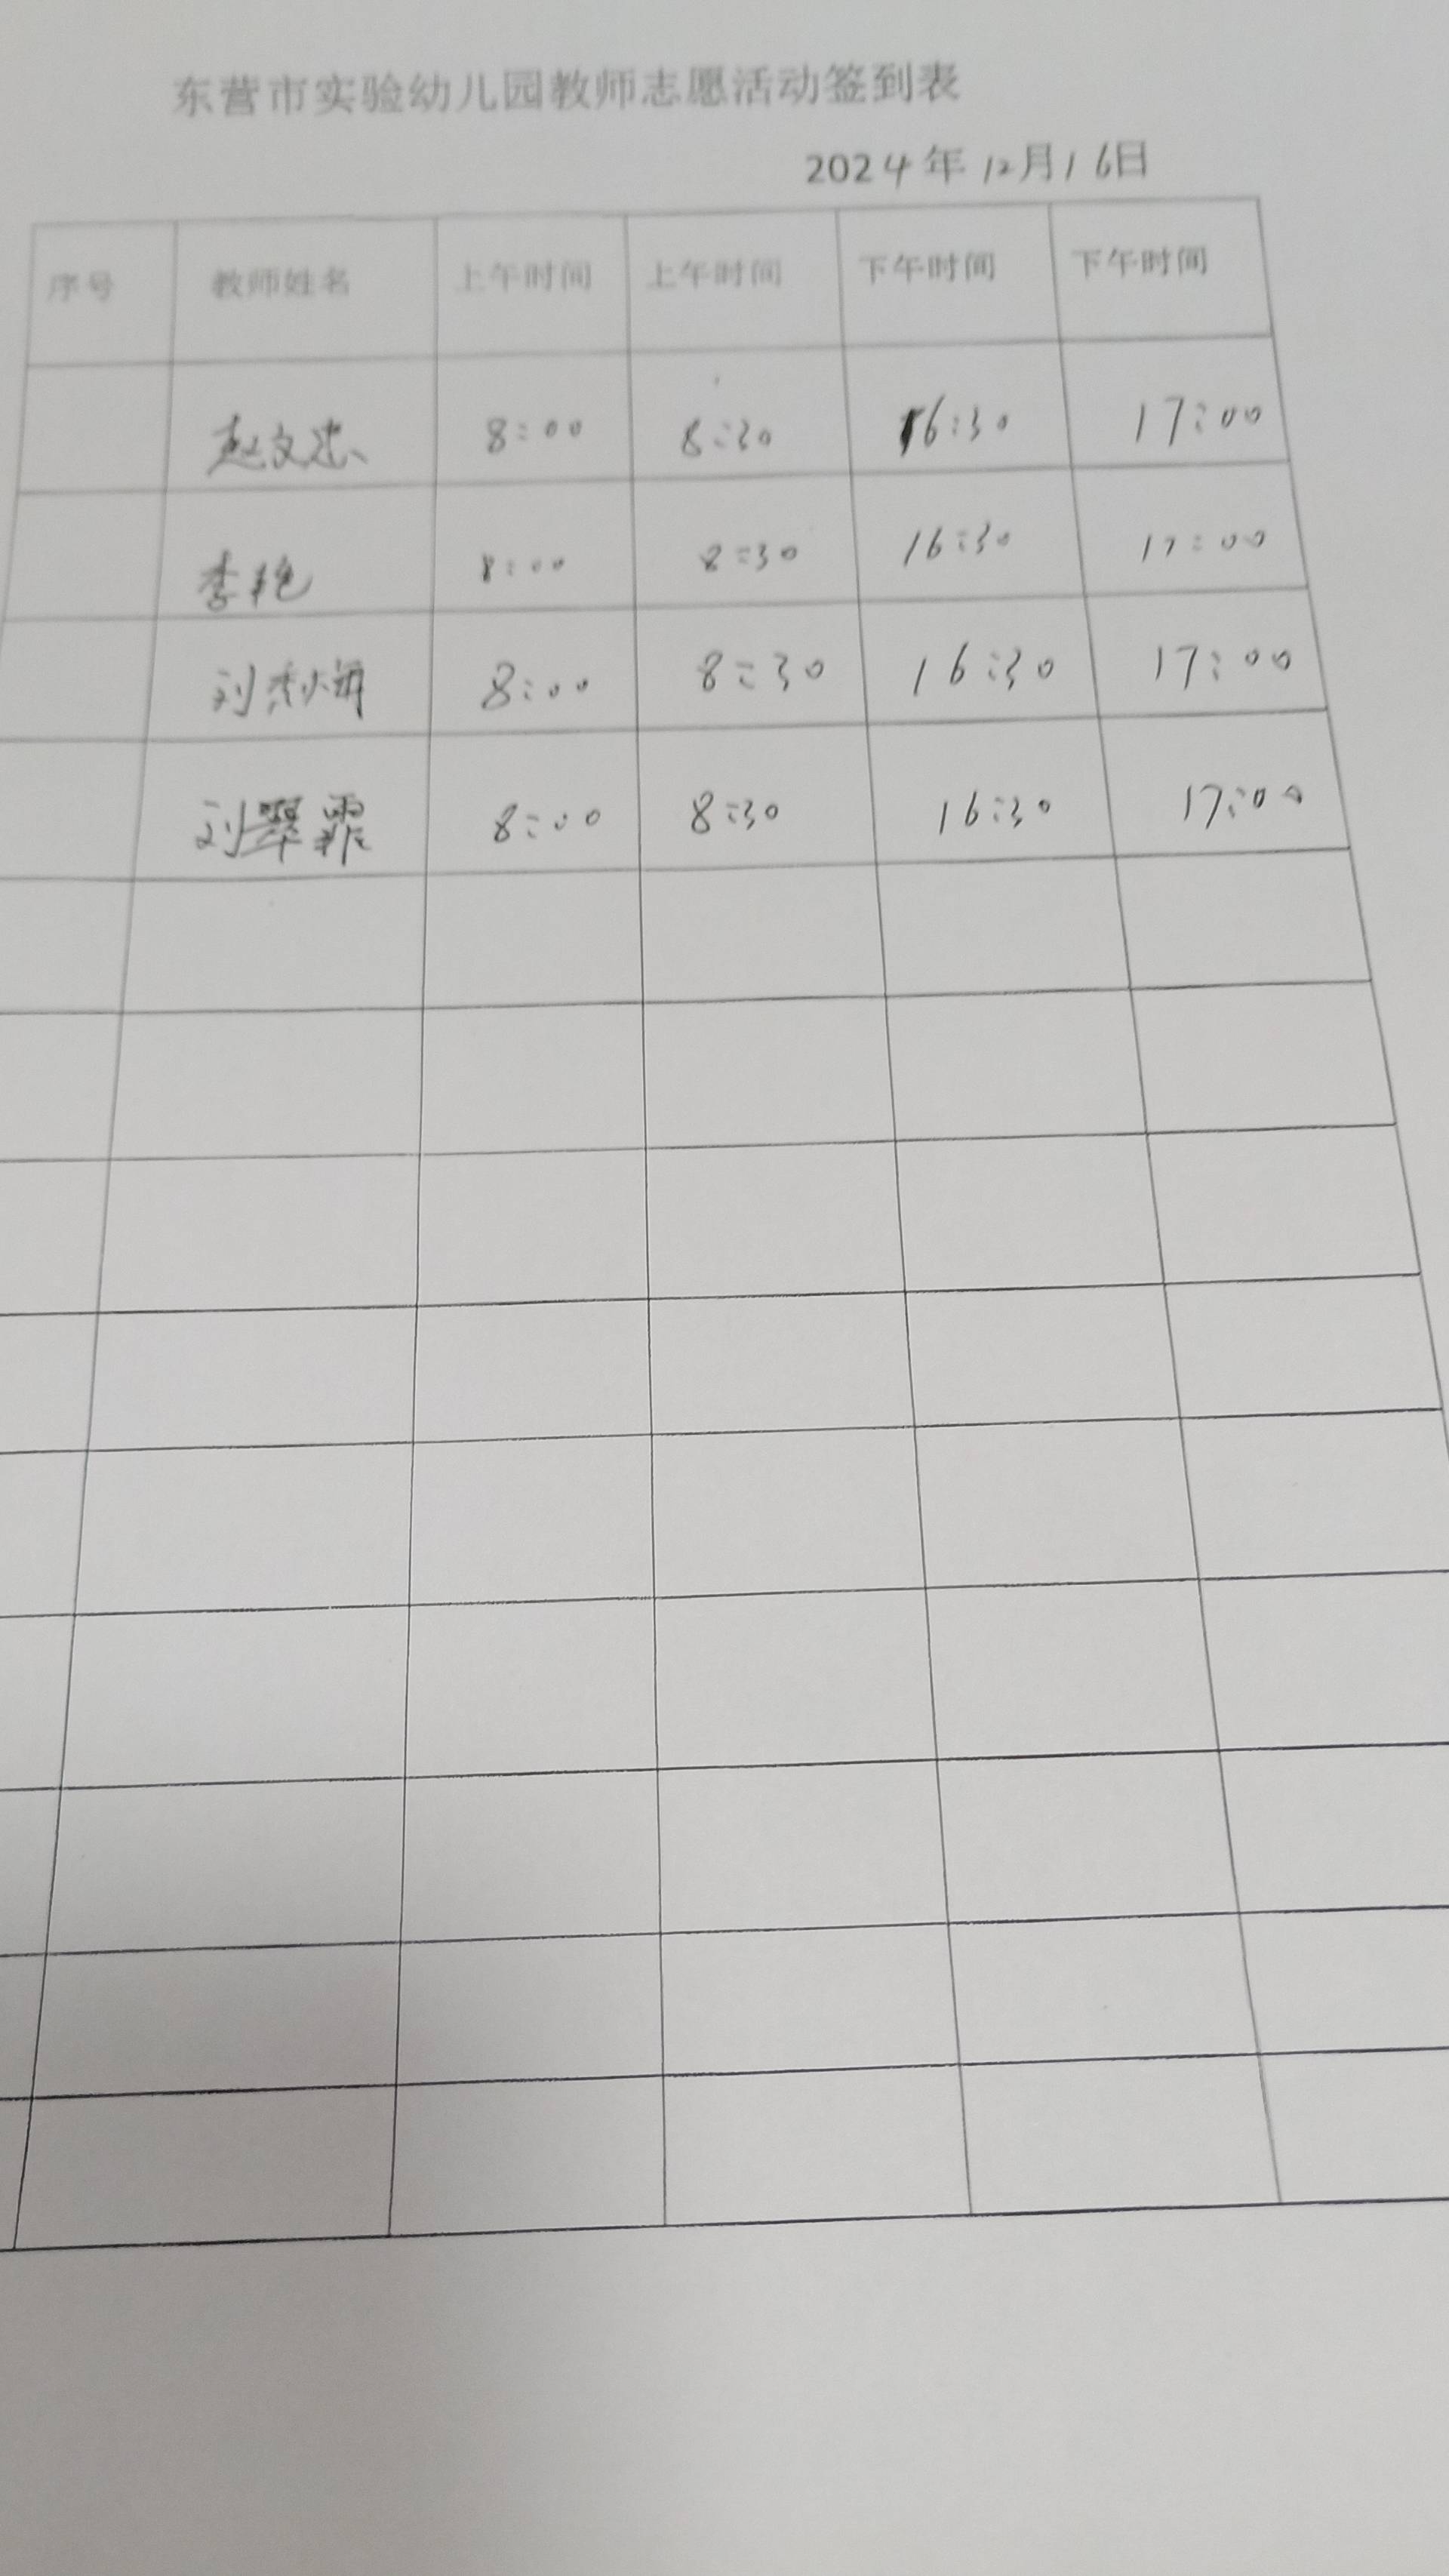 东营市实验幼儿园教师志愿活动签到表
2024年12月16日
序号 教师姓名 上午时间 上午时间 下午时间 下午时间
赵文忠 8:00 8:30 16:30 17:00
李艳 8:00 8:30 16:30 17:00
刘 8:00 8:30 16:30 17:00
刘翠霏 8:00 8:30 16:30 17:00